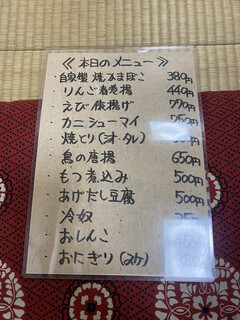 ≪本日のメニュー≫
・自家製 焼かまぼこ 380円
・りんご春巻揚 440円
・えび俵揚げ 770円
・カニシューマイ
・焼とり(シオ・タレ)
・鳥の唐揚 650円
・もつ煮込み 500円
・あげだし豆腐 500円
・冷奴
・おしんこ
・おにぎり